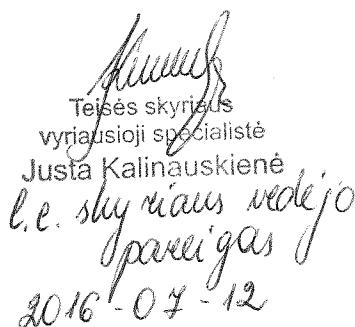 Teisės skyriaus
vyriausioji specialistė
Justa Kalinauskienė
l.e. skyriaus vedėjo
pareigas
2016-07-12